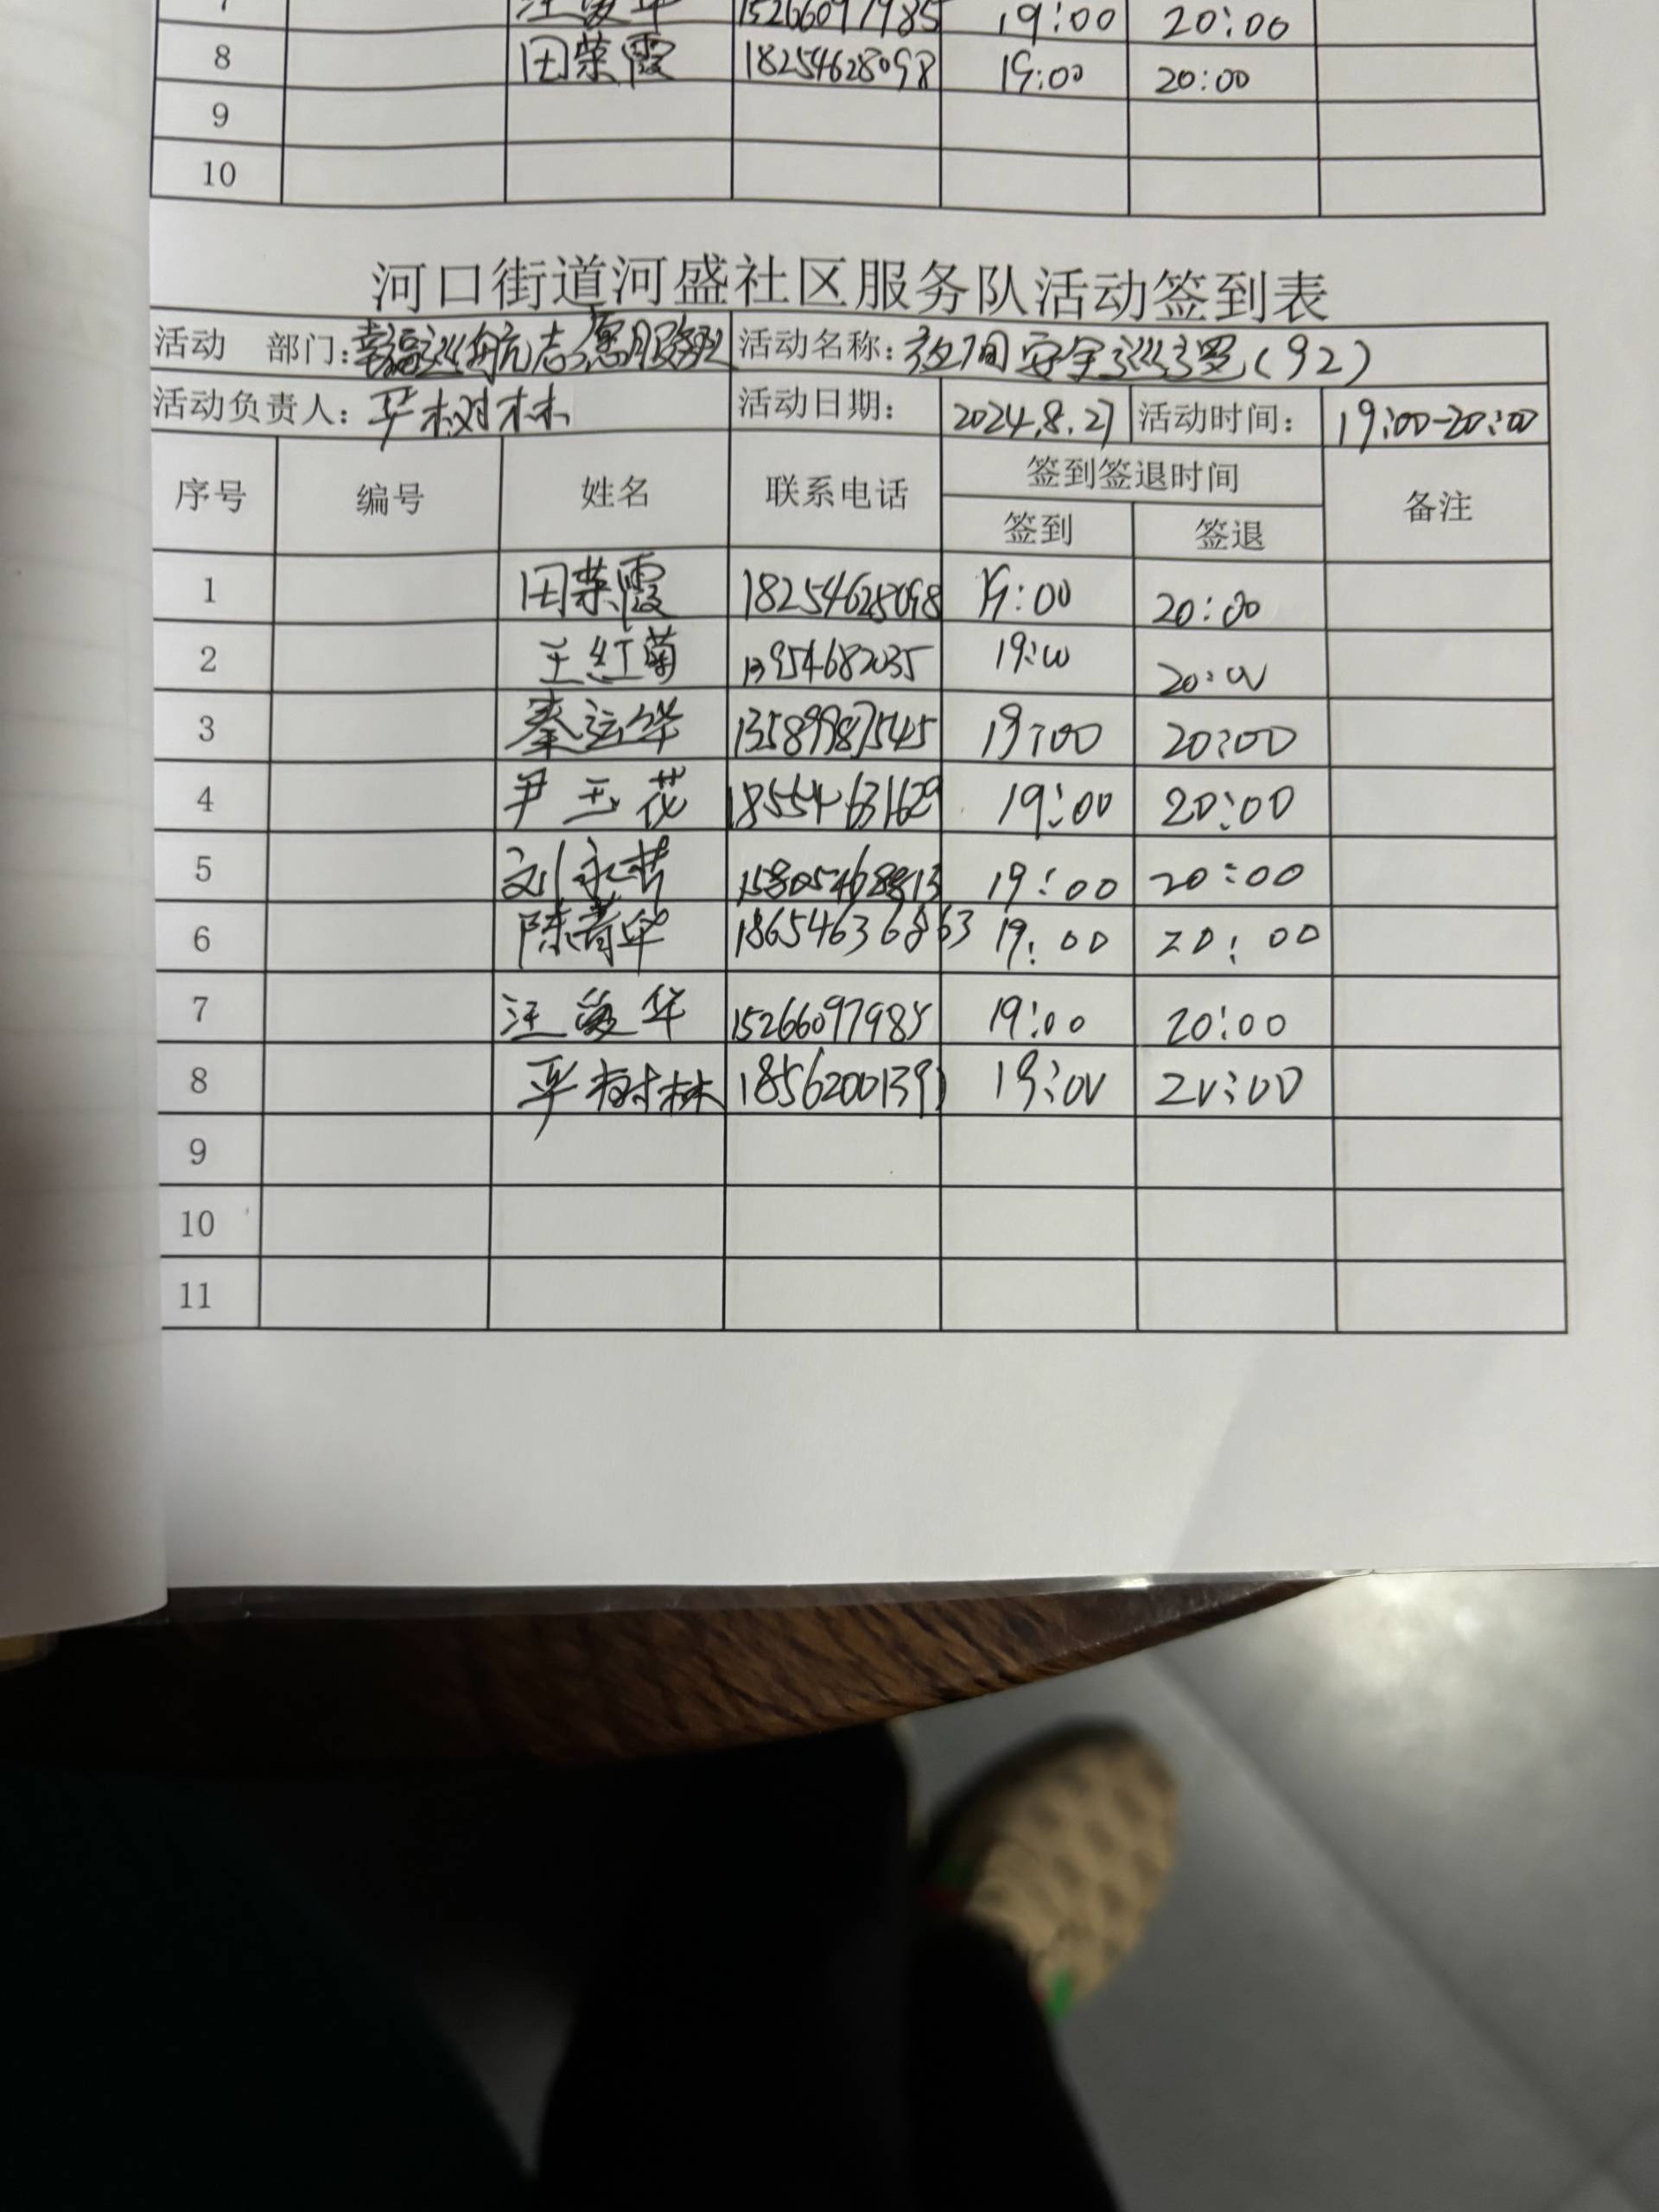 15266097985 19:00 20:00
8 田荣霞 18254628098 19:00 20:00
9
10
河口街道河盛社区服务队活动签到表
活动 部门：幸福巡航志愿服务队 活动名称：夜间安全巡逻（92）
活动负责人：平树林 活动日期： 2024.8.27 活动时间： 19:00-20:00
序号 编号 姓名 联系电话 签到签退时间 备注
签到 签退
1 田荣霞 18254628098 19:00 20:00
2 王红菊 13954682035 19:00 20:00
3 秦运华 13589987545 19:00 20:00
4 尹玉花 18554631629 19:00 20:00
5 刘永芹 15805468813 19:00 20:00
6 陈青华 18654636863 19:00 20:00
7 汪爱华 15266097985 19:00 20:00
8 平树林 18562001391 19:00 20:00
9
10
11